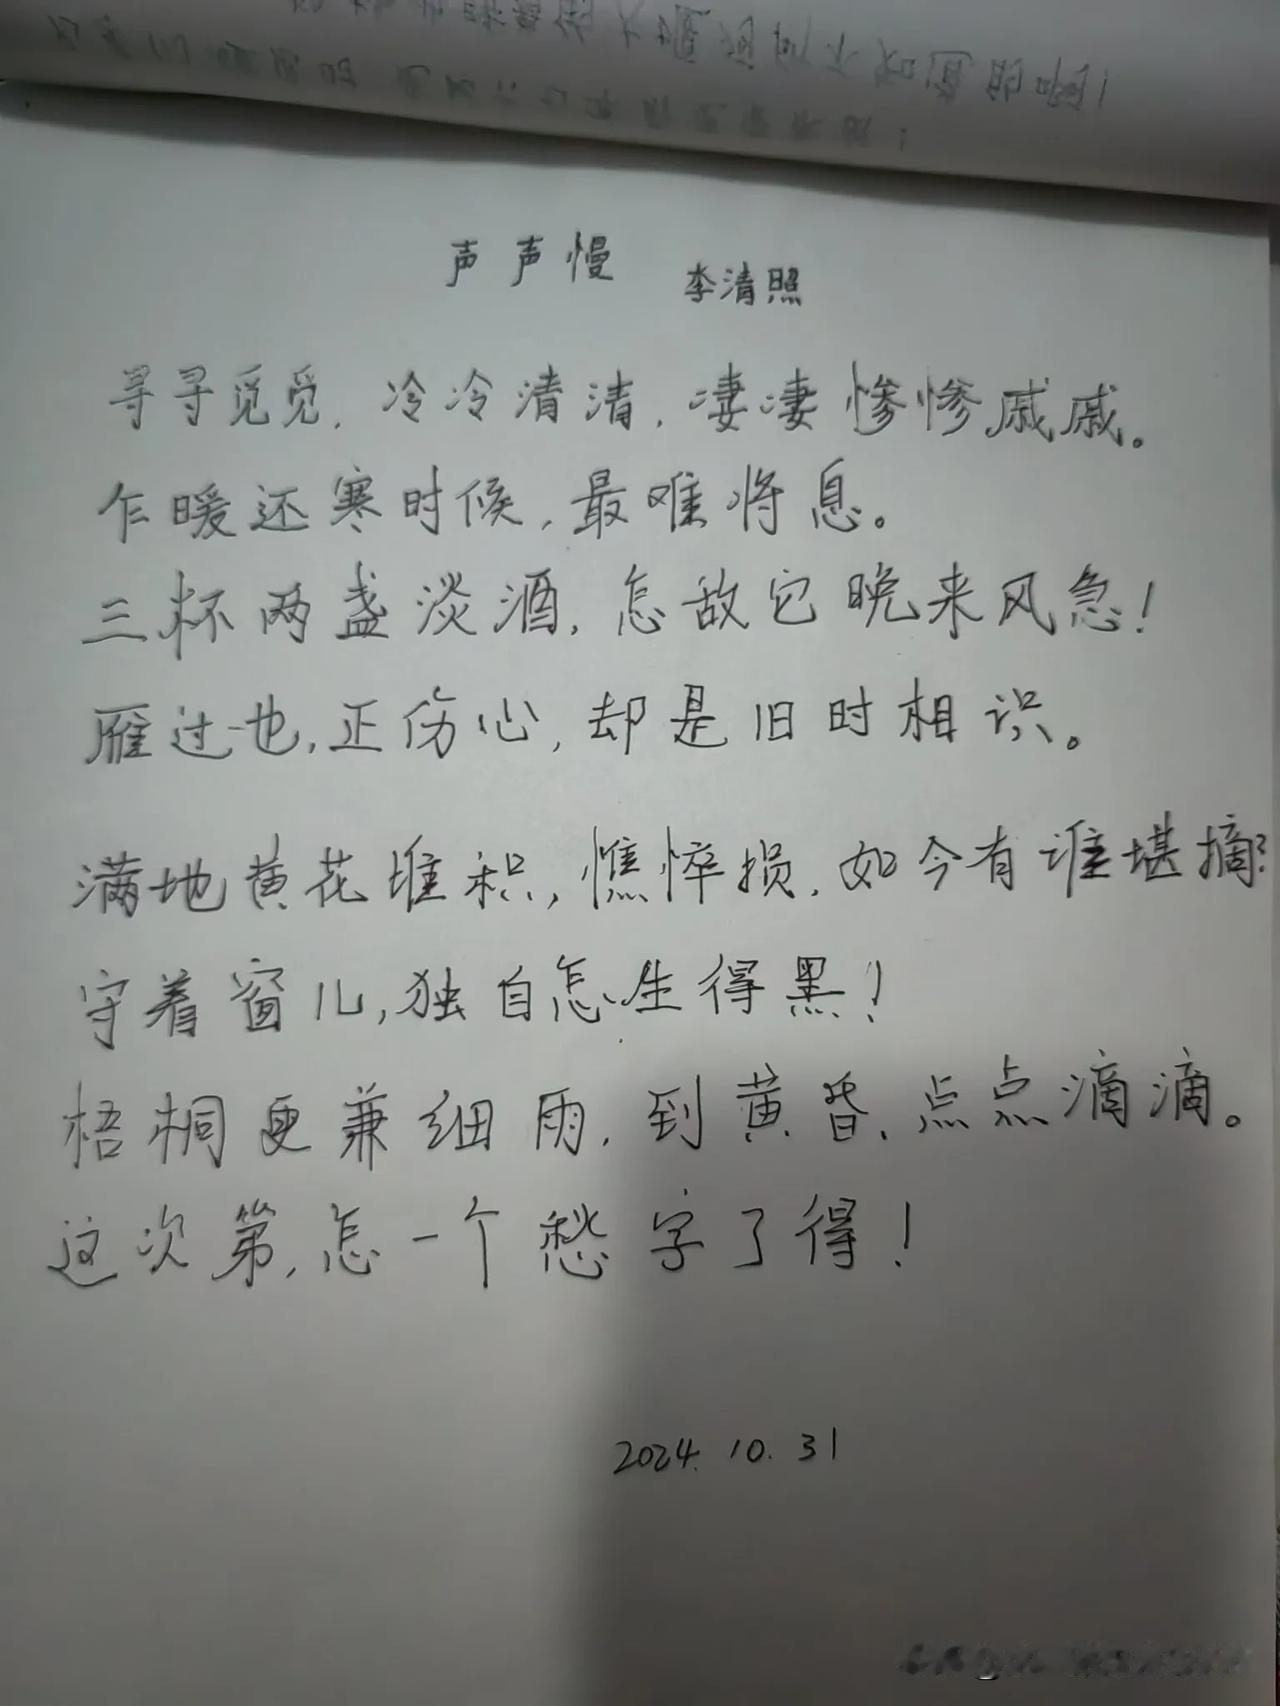 声声慢 李清照
寻寻觅觅，冷冷清清，凄凄惨惨戚戚。
乍暖还寒时候，最难将息。
三杯两盏淡酒，怎敌它晚来风急！
雁过也，正伤心，却是旧时相识。
满地黄花堆积，憔悴损，如今有谁堪摘？
守着窗儿，独自怎生得黑！
梧桐更兼细雨，到黄昏、点点滴滴。
这次第，怎一个愁字了得！
2024.10.31